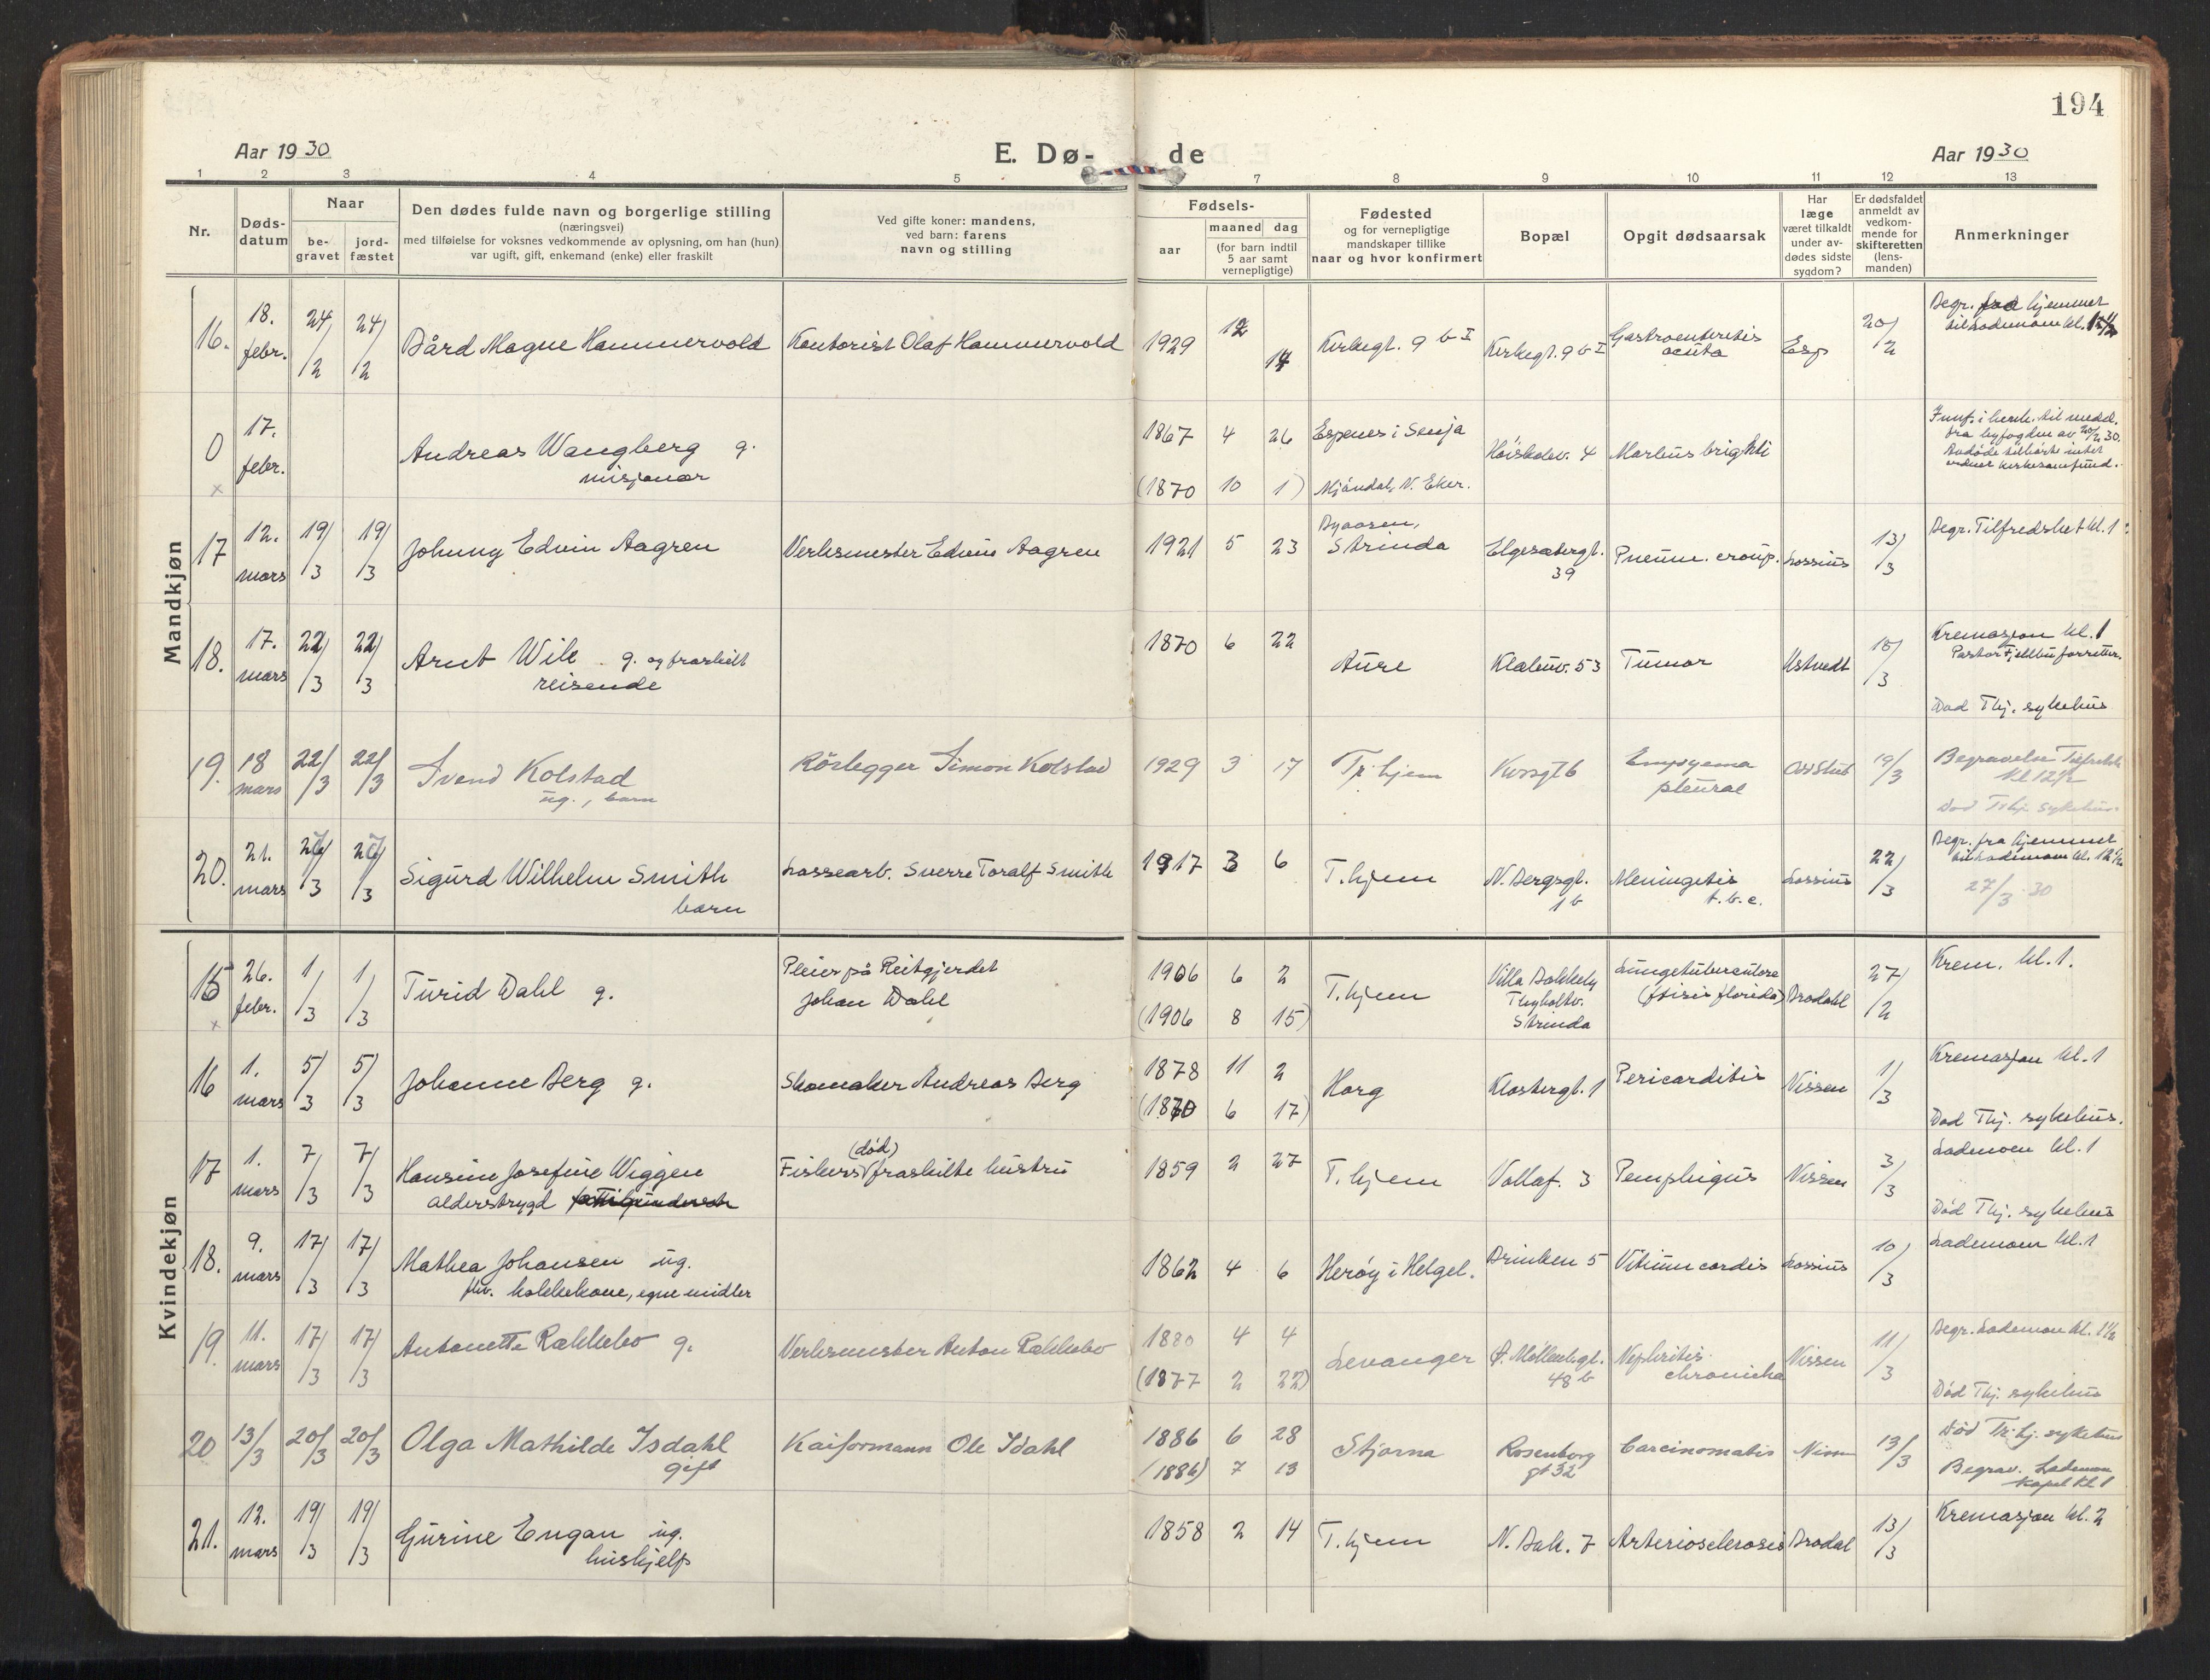 194
Aar 1930
E. Dø-
de
Aar 1930
1 2 3 4 5 7 8 9 10 11 12 13
Nr.
Døds-
datum
Naar
be-
gravet
jord-
fæstet
Den dødes fulde navn og borgerlige stilling
(næringsvei)
med tilføielse for voksnes vedkommende av oplysning, om han (hun)
var ugift, gift, enkemand (enke) eller fraskilt
Ved gifte koner: mandens,
ved barn: farens
navn og stilling
Fødsels-
aar
maaned dag
(for barn indtil
5 aar samt
vernepligtige)
Fødested
og for vernepligtige
mandskaper tillike
naar og hvor konfirmert
Bopæl
Opgit dødsaarsak
Har
læge
været tilkaldt
under av-
dødes sidste
sygdom?
Er dødsfaldet
anmeldt av
vedkom-
mende for
skifteretten
(lens-
manden)
Anmerkninger
Mandkjøn
16. 18. febr. 24/2 24/2 Bård Magne Hammervold Kontorist Olaf Hammervold 1929 12 14 Kirkegt. 9 b I Kirkegt. 9 b I Gastroenteritis acuta Esp 20/2 Begr. fra hjemmet
til Lademoen kl.
0 17. febr. Andreas Wangberg g. 1867 4 26 Espenes i Senja Høiskolev. 4 Morbus brightii
x misjonær (1870 10 1) Mjöndal, N. Eker.
Innf. i henh. til medd.
fra byfogden av 20/2 30.
Avdöde tilhörte intet
kirkesamfund.
17 12. mars 19/3 19/3 Johnny Edvin Aagren Verksmester Edvin Aagren 1921 5 23 Byaasen, Strinda Elgesætergt. 39 Pneum. croup. Lossius 13/3 Begr. Tilfredshet kl. 1
18. 17. mars 22/3 22/3 Arnt Wik g. og fraskilt 1870 6 22 Aure Klæbuv. 53 Tumor Ustvedt 18/3 Kremasjon kl. 1
reisende Pastor Fjellbu forretter.
Död Thj. sykehus
19. 18 mars 22/3 22/3 Svend Kolstad Rörlegger Simon Kolstad 1929 3 17 Tr.hjem Korsgt 6 Empyema pleural 19/3 Begravelse Tilfredsh.
ug., barn Kl 12½
Död Trhj. sykehus
20. 21. mars 27/3 27/3 Sigurd Wilhelm Smith Lossearb. Sverre Toralf Smith 1917 3 6 T.hjem N. Bergsgt. 1 b Meningitis t.b.c. Lossius 22/3 Begr. fra hjemmet
barn til Lademoen kl. 12½
27/3 30
Kvindekjøn
15 26. febr. 1/3 1/3 Turid Dahl g. Pleier på Reitgjerdet
Johan Dahl 1906 6 2 T.hjem Villa Bakkely Lungetuberculose Brodahl 27/2 Krem. kl. 1.
x (1906 8 15) Thyholtv. (ftisis florida)
Strinda
16 1. mars 5/3 5/3 Johanne Berg g. Skomaker Andreas Berg 1878 11 2 Horg Klostergt. 1 Pericarditis Nissen 1/3 Kremasjon kl. 1
(1870 6 17) Död Thj. sykehus.
17 1. mars 7/3 7/3 Hansine Josefine Wiggen Fiskers (død) fraskilte hustru 1859 2 27 T.hjem Vollaf. 3 Pemphigus Nissen 3/3 Lademoen kl. 1
alderstrygd Död Thj. sykehus
18. 9. mars 17/3 17/3 Mathea Johansen ug. 1862 4 6 Herøy i Helgel. Brinken 5 Vitium cordis Lossius 10/3 Lademoen kl. 1
fhv. kokkekone, egne midler
19. 11. mars 17/3 17/3 Antonette Rækkebo g. Verksmester Anton Rækkebo 1880 4 4 Levanger Möllenbgt. 48 b Nephritis chronicha Nissen 11/3 Begr. Lademoen kl. 1½
(1877 2 22) Död Thj. sykehus
20 13/3 20/3 20/3 Olga Mathilde Isdahl Kaiformann Ole Isdahl 1886 6 28 Stjørna Rosenborg gt 32 Carcinomatis Nissen 13/3 Död Tr.hj. sykehus
gift (1886) 7 13 Begrav. Lademoen
Kapel Kl 1
21. 12. mars 19/3 19/3 Gurine Engan ug. 1858 2 14 T.hjem N. Bak. 7 Arteriosclerosis Brodal 13/3 Kremasjon kl. 2
hushjelp